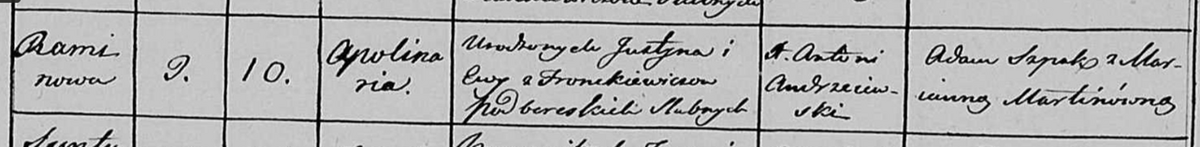 Rami
nowa
9.
10.
Apolina
ria.
Urodzonych Justyna i
Ewy z Fronckiewiczow
Podbereskich Slubnych
X. Antoni
Andrzeiew-
ski
Adam Szpak z Mar-
ianną Martinówną